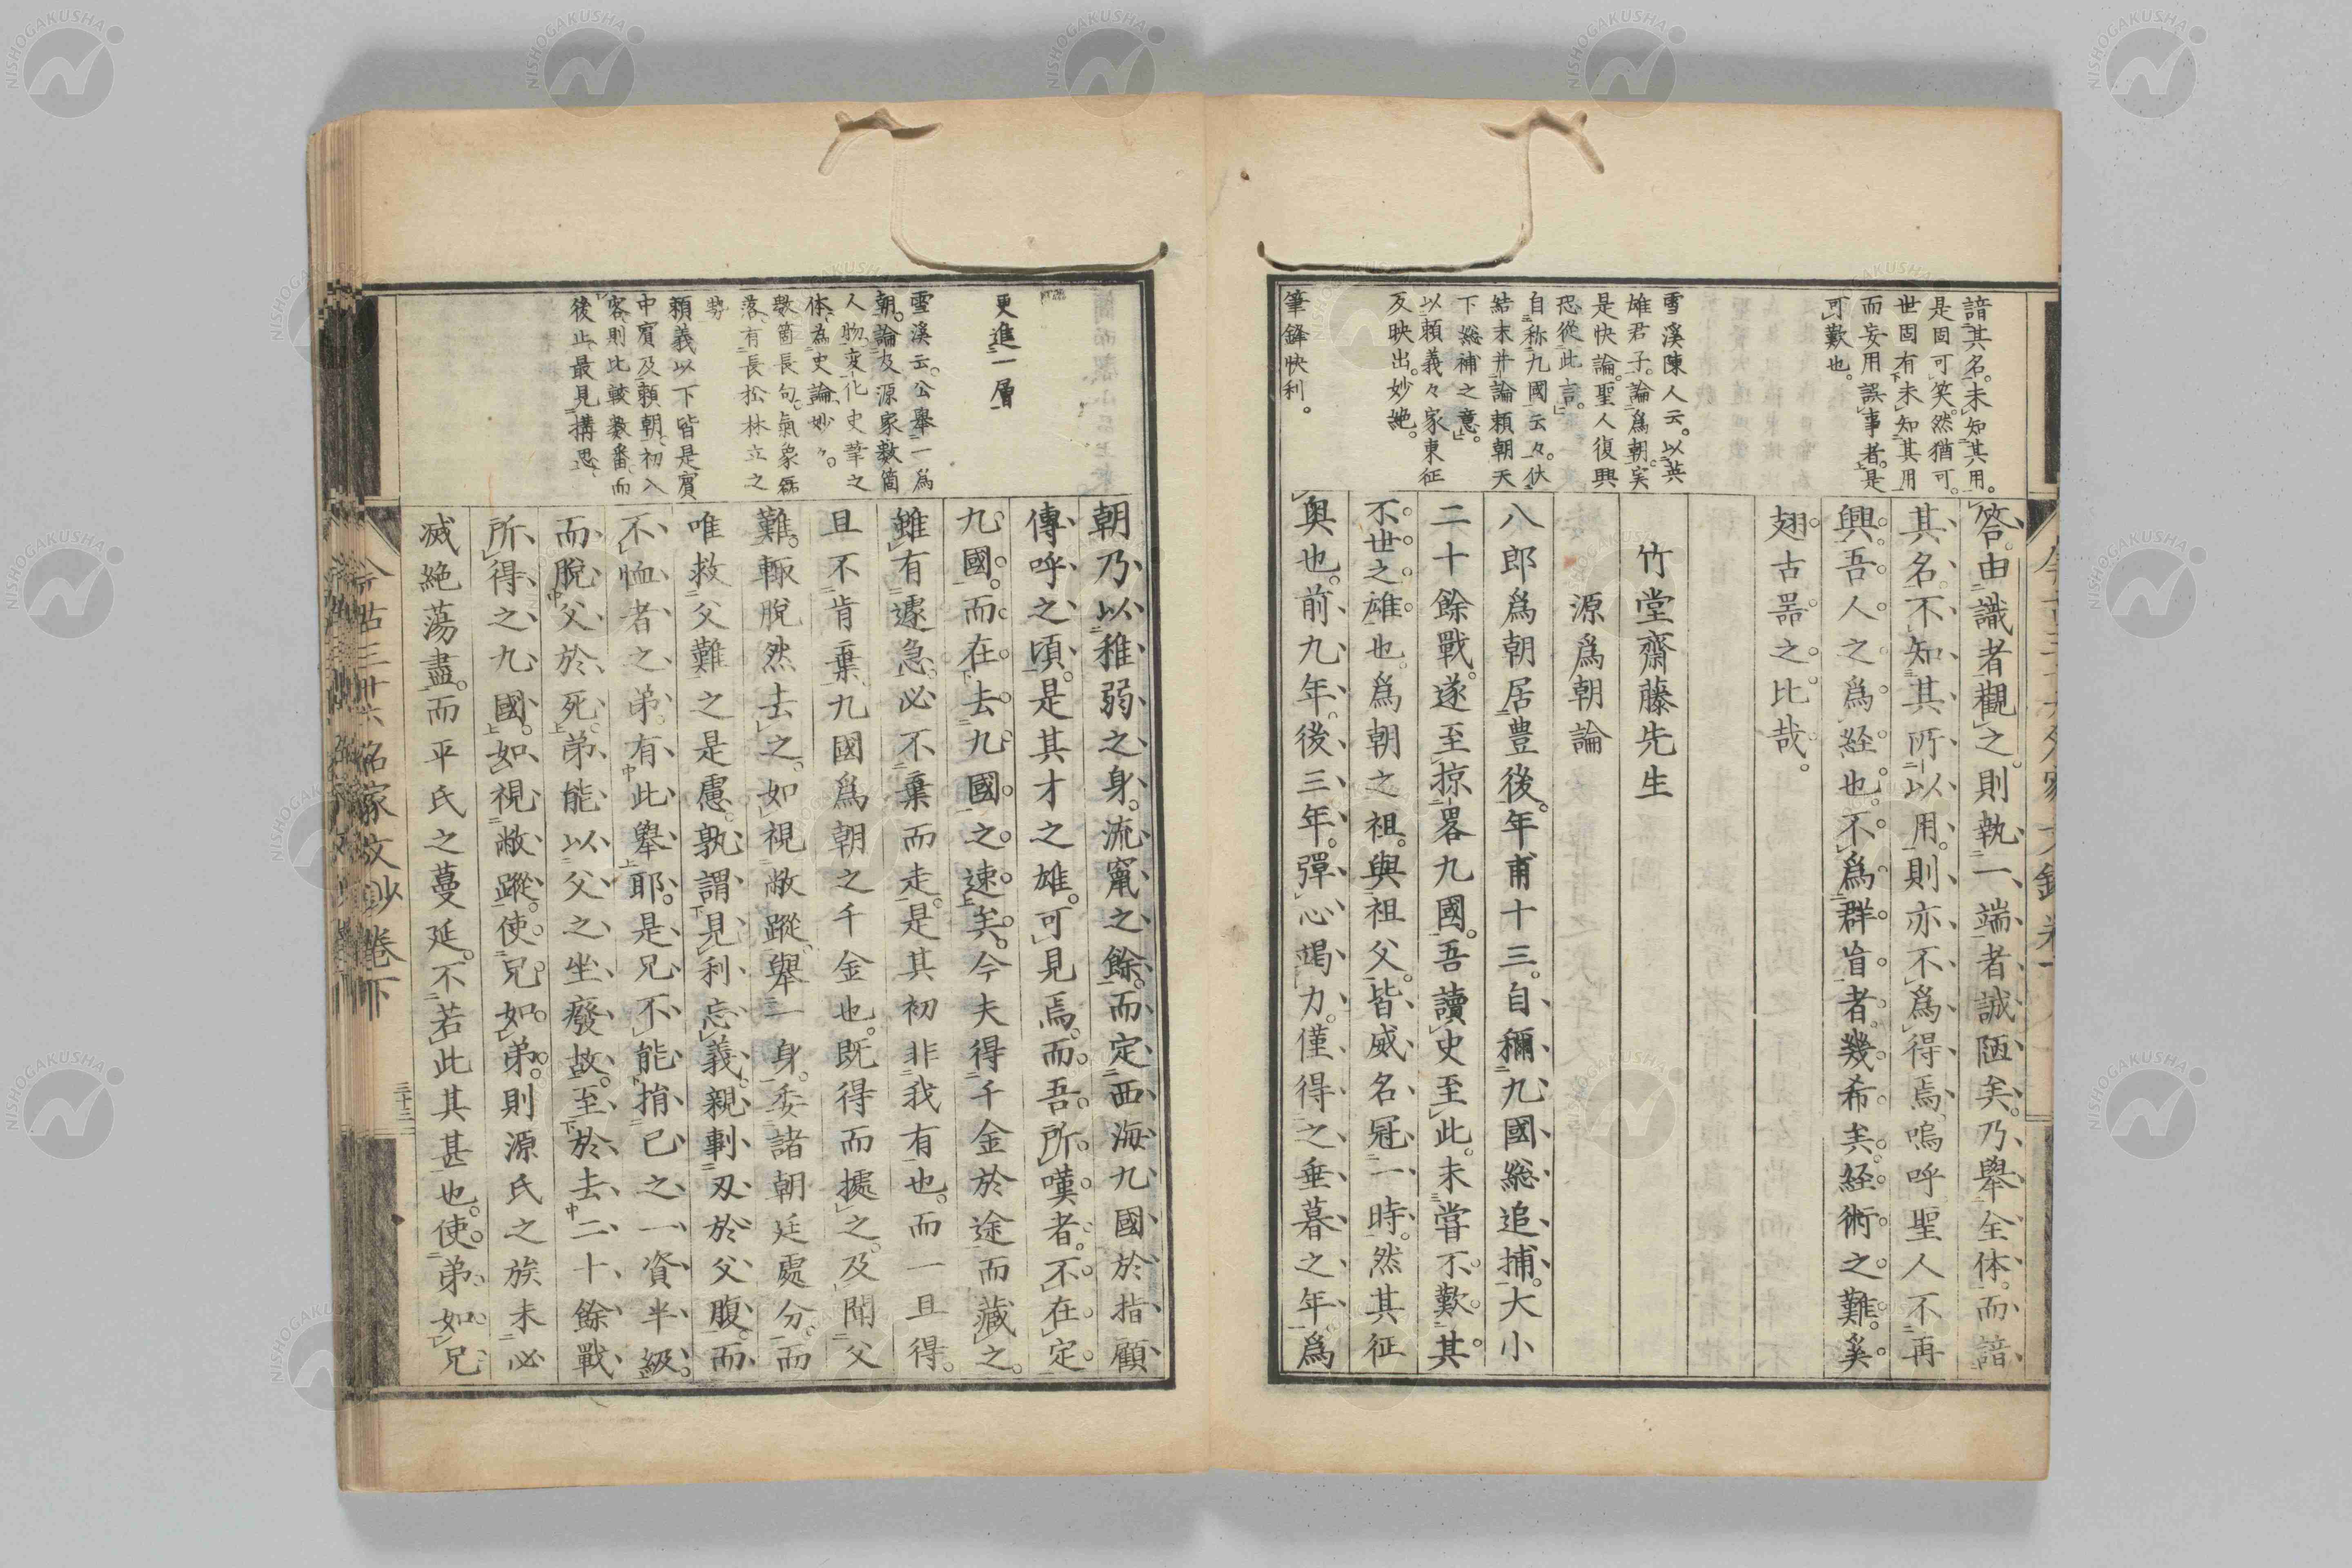 諳其名。未知其用。
是固可笑。然猶可。
世固有未知其用
而妄用誤事者。是
可歎也。
答。由識者觀之。則執一端者誠陋矣。乃舉全体。而諳
其名。不知其所以用。則亦不爲得焉。嗚呼聖人不再
興。吾人之爲経也。不爲群盲者。幾希矣。経術之難。奚
翅古器之比哉。
竹堂齋藤先生
源爲朝論
雪溪陳人云。以英
雄君子。論爲朝。実
是快論。聖人復興
恐從此言。
自称九國云々。伏
結末并論頼朝天
下総補之意。
以頼義々家東征
反映出。妙絶。
筆鋒快利。
八郎爲朝居豊後。年甫十三。自稱九國総追捕。大小
二十餘戰。遂至掠畧九國。吾讀史至此。未嘗不歎其
不世之雄也。爲朝之祖。與祖父。皆威名冠一時。然其征
奥也。前九年。後三年。殫心竭力。僅得之垂暮之年。爲
更進一層
雪溪云。公舉一爲
朝。論及源家数箇
人物。変化史筆之
体。為史論。妙々。
数箇長句。氣象磊
落。有長松林立之
勢
頼義以下皆是賓
中賓。及頼朝。初入
客則比較数番。而
後止。最見搆思。
朝乃以稚弱之身。流竄之餘。而定西海九國於指顧
傳呼之頃。是其才之雄。可見焉。而吾所嘆者。不在定
九國。而在去九國之速矣。今夫得千金於途而藏之。
雖有遽急。必不棄而走。是其初非我有也。而一旦得。
且不肯棄。九國爲朝之千金也。既得而據之。及聞父
難。輙脫然去之。如視敝蹤。舉一身。委諸朝廷處分。而
唯救父難之是慮。孰謂見利忘義。親剚刃於父腹。而
不恤者之弟。有此舉耶。是兄不能捐已之一資半級。
而脫父於死。弟能以父之坐癈故。至於去二十餘戰
所得之九國。如視敝蹤。使兄如弟。則源氏之族未必
滅絶蕩盡。而平氏之蔓延。不若此其甚也。使弟如兄
今古三十六名家文鈔 卷下
三十三